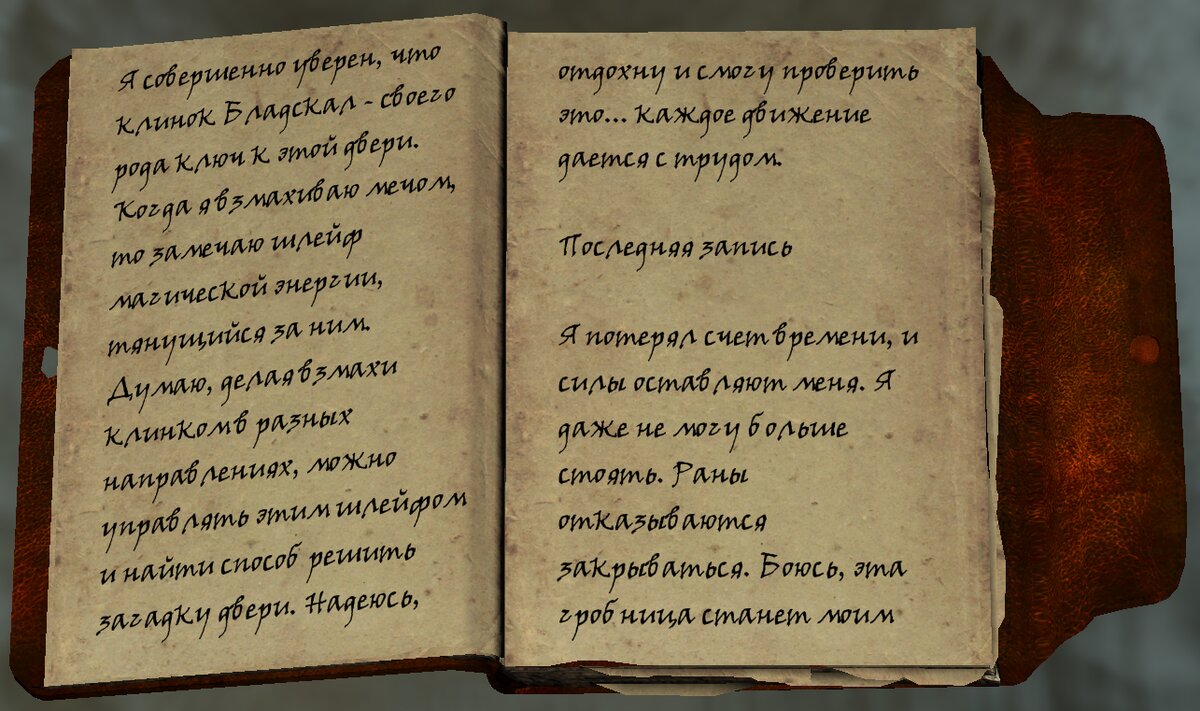 Я совершенно уверен, что
клинок Бладскал - своего
рода ключ к этой двери.
Когда я взмахиваю мечом,
то замечаю шлейф
магической энергии,
тянущийся за ним.
Думаю, делая взмахи
клинком в разных
направлениях, можно
управлять этим шлейфом
и найти способ решить
загадку двери. Надеюсь,
отдохну и смогу проверить
это... Каждое движение
дается с трудом.
Последняя запись
Я потерял счет времени, и
силы оставляют меня. Я
даже не могу больше
стоять. Раны
отказываются
закрываться. Боюсь, эта
гробница станет моим